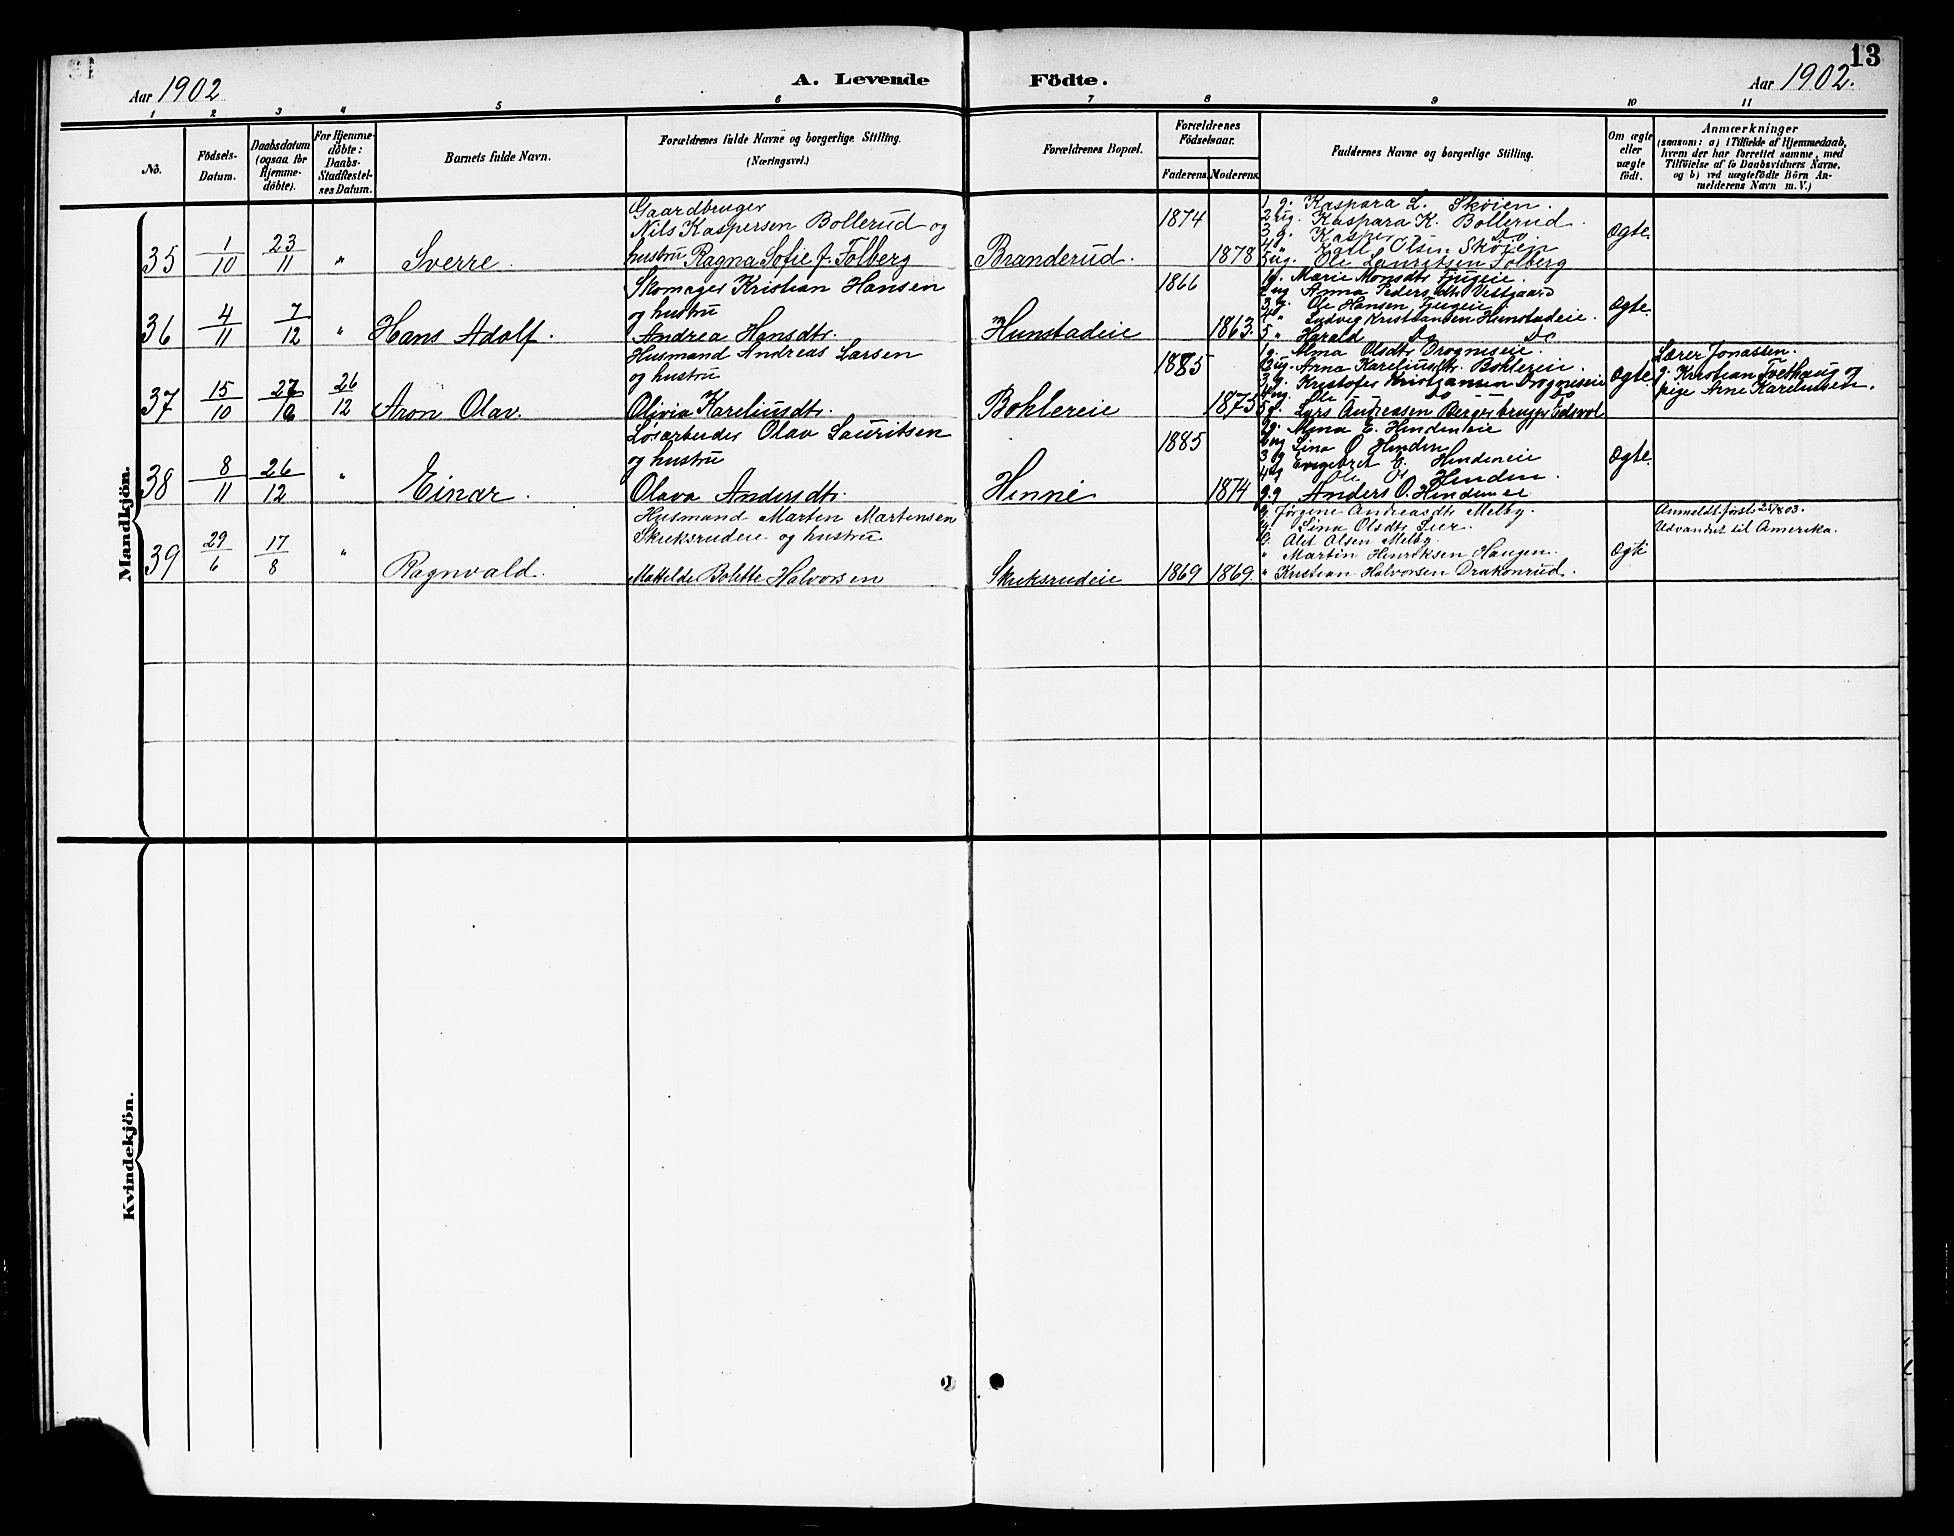 13
Aar 1902
A. Levende Födte.
Aar 1902.
1 2 3 4 5 6 7 8 9 10 11
No.
Födsels-Datum.
Daabsdatum (ogsaa for Hjemme-döbte).
For Hjemme-döbte: Daabs-Stadfæstel-ses Datum.
Barnets fulde Navn.
Forældrenes fulde Navne og borgerlige Stilling.
(Næringsvei.)
Forældrenes Bopæl.
Forældrenes Födselsaar.
Faderens. Moderens.
Faddernes Navne og borgerlige Stilling.
Om ægte eller uægte födt.
Anmærkninger
(saasom: a) i Tilfælde af Hjemmedaab,
hvem der har forrettet samme, med
Tilföielse af to Daabsvidners Navne.
og b) ved uægtefödte Börn An-
melderens Navn m. V.)
Mandkjön.
35 1/10 23/11 " Sverre.
Gaardbruger
Nils Kaspersen Bollerud og
hustru Ragna Sofie f. Tolberg
Branderud. 1874 1878
1 g. Kaspara L. Skøien.
2 ug. Kaspara K. Bollerud.
3 g. Kasper Do.
4 " Olsen Skøien
5 ug. Ole Lauritsen Tolberg
Ægte.
36 4/11 7/12 " Hans Adolf.
Skomager Kristian Hansen
og hustru
Andrea Hansdtr.
Hunstadeie 1866 1863.
1 g. Marie Monsdtr.
2 ug Anna Pedersdtr. Vestgaard
3 g. Ole Hansen
4 " Ludvig Kristiansen Hunstadeie.
5 " Harald Do Do
Ægte.
37 15/10 26/12 Aron Olav.
Husmand Andreas Larsen
og hustru
Olivia Kareliusdtr.
Bohlereie 1885 1875
1 g. Alma Olsdtr. Drogneseie.
2 ug. Anna Kareliusdtr. Bohlereie.
3 g. Kristofer Kristiansen Drogneseie
4 ug. Ole Do Do
5 f. Lars Andreassen Eidsvol
Ægte.
Lærer Jonassen.
g. Kristian Tvethaug og
pige Arne Kareliussen.
38 8/11 26/12 " Einar.
Løsarbeider Olav Lauritsen
og hustru
Olava Andersdtr.
Henni 1885 1874
1 g. Alma E. Hendeneie
2 ug Lina O Henden
3 g Engebret E. Hendeneie
4 ug Ole O Henden.
g.g Anders O. Hendeneie
Ægte.
39 29/6 17/8 " Ragnvald.
Husmand Marten Martensen
Skriksrudeie og hustru
Matilde Bolette Halvorsen
Skriksrudeie 1869 1869
g. Jørgine Andreasdtr Melby.
g. Lina Olsdtr Lier.
G. Olsen Melby.
" Martin Henriksen Haugen.
" Kristian Halvorsen Drakonrud.
Ægte
Anmeldt først 25/8 03.
Udvandret til Amerika.
Kvindekjön.